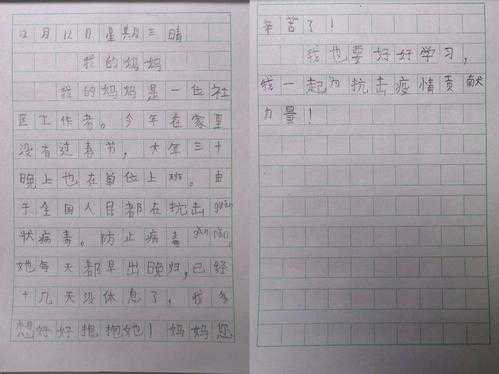 12月12日星期三晴
我的妈妈
我的妈妈是一位社
区工作者。今年在家里
没有过春节，大年三十
晚上也在单位上班。由
于全国人民都在抗击guān
状病毒。防止病毒
她每天都早出晚归，已经
十几天没休息了，我多
想好好抱抱她！妈妈您
辛苦了！
我也要好好学习，
我一起为抗击疫情贡献
力量！